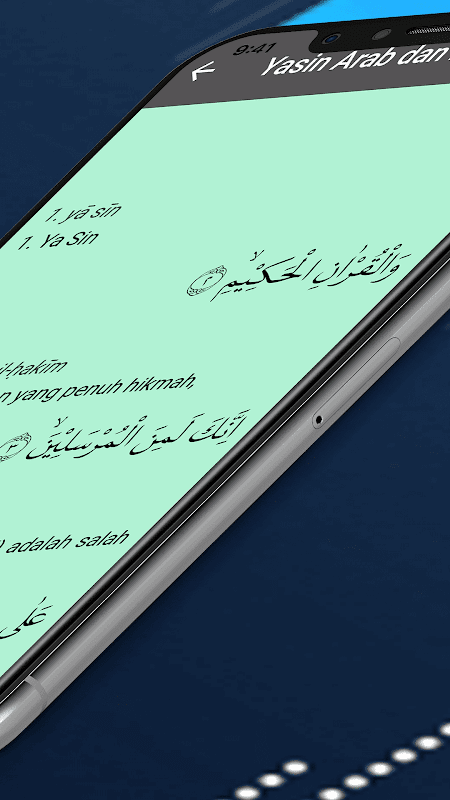 9:41
Yasin Arab dan
1. yā sīn
1. Ya Sin
وَالْقُرْاٰنِ الْحَكِيْمِۙ ۝٢
il-ḥakīm
yang penuh hikmah,
اِنَّكَ لَمِنَ الْمُرْسَلِيْنَۙ ۝٣
adalah salah
عَلٰى